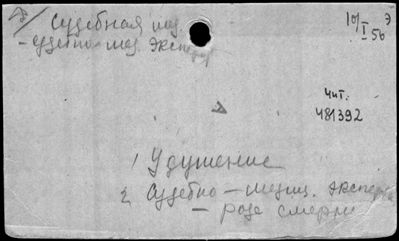 Судебная мед.
– судебно-мед. экспер
10/I 56
Э
чит.
481392
1 Удушение
2 Судебно – медиц. экспер
– роде смерти